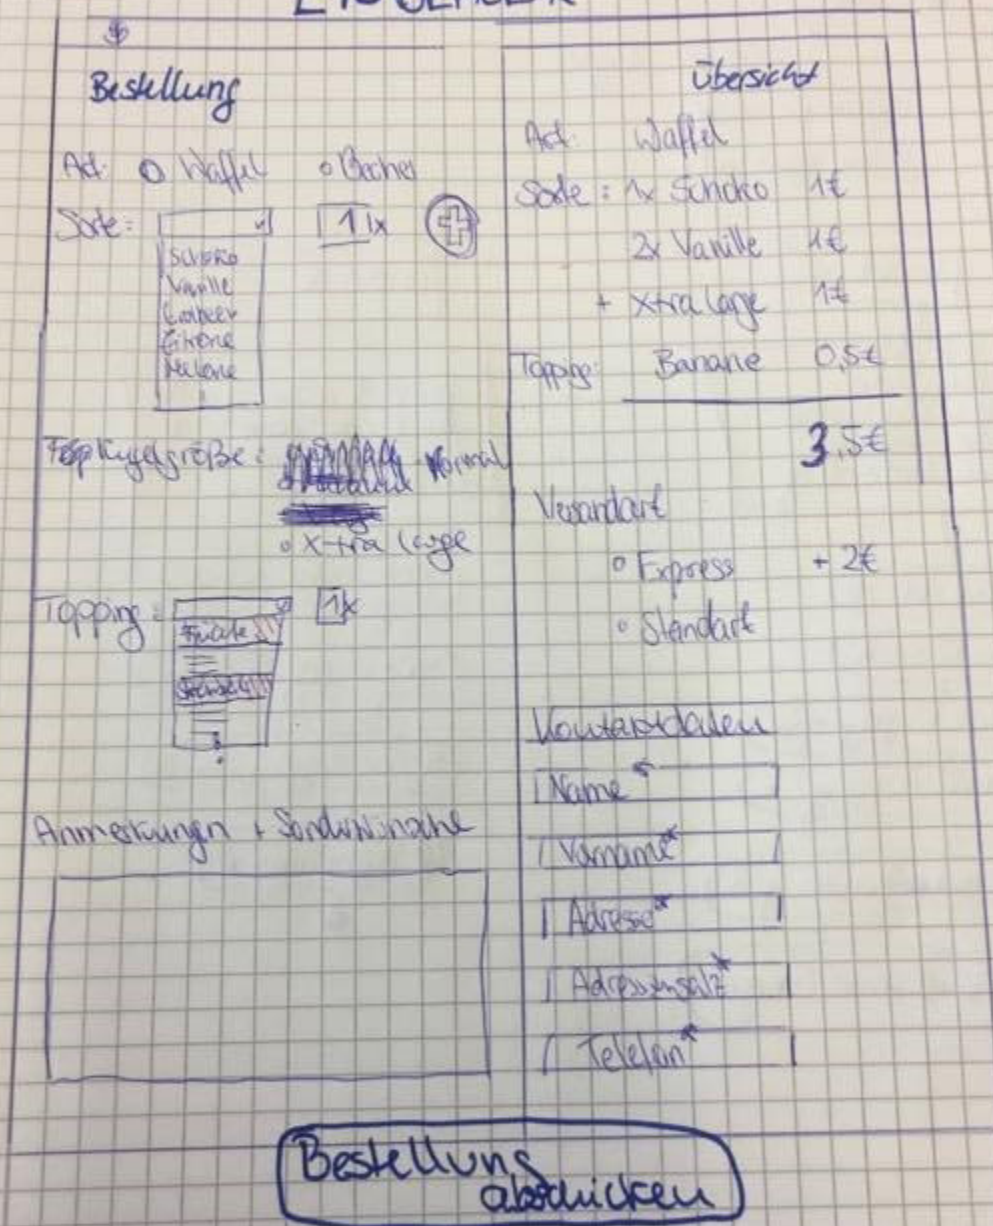 Bestellung
Art: o Waffel o Becher
Sorte: 1 x +
Schoko
Vanille
Erdbeer
Zitrone
Melone
Kugelgröße: Normal
o X-tra large
Topping: 1x
Früchte
Anmerkungen + Sonderwünsche
Übersicht
Art: Waffel
Sorte: 1x Schoko 1€
2x Vanille 1€
+ Xtra large 1€
Topping: Banane 0,5€
3,5€
Versandart
o Express + 2€
o Standart
Kontaktdaten
Name*
Vorname*
Adresse*
Adresszusatz*
Telefon*
Bestellung
abschicken